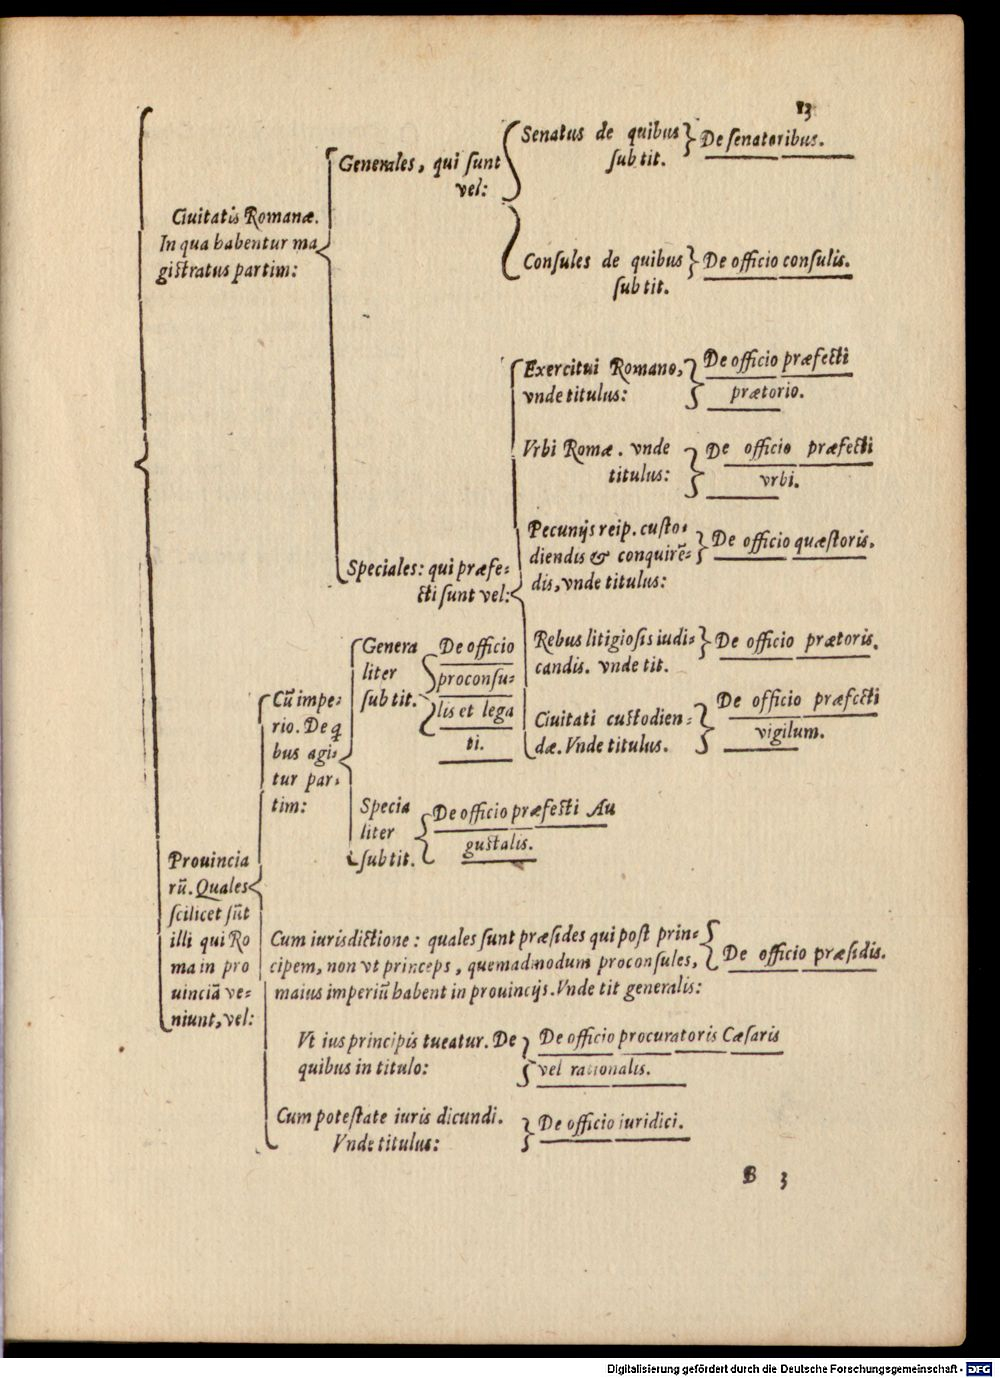 13
Ciuitatis Romanæ.
In qua habentur ma
gistratus partim:
Generales, qui sunt
vel:
Senatus de quibus
sub tit.
De senatoribus.
Consules de quibus
sub tit.
De officio consulis.
Speciales: qui præfe-
cti sunt vel:
Exercitui Romano,
vnde titulus:
De officio præfecti
prætorio.
Vrbi Romæ. vnde
titulus:
De officio præfecti
vrbi.
Pecunijs reip. custo-
diendis & conquirē-
dis, vnde titulus:
De officio quæstoris.
Rebus litigiosis iudi-
candis. vnde tit.
De officio prætoris.
Ciuitati custodien-
dæ. Vnde titulus.
De officio præfecti
vigilum.
Prouincia
rū. Quales
scilicet sūt
illi qui Ro
ma in pro
uinciā ve-
niunt, vel:
Cū impe-
rio. De q̄
bus agi-
tur par-
tim:
Genera
liter
sub tit.
De officio
proconsu-
lis et lega
ti.
Specia
liter
sub tit.
De officio præfecti Au
gustalis.
Cum iurisdictione: quales sunt præsides qui post prin-
cipem, non vt princeps, quemadmodum proconsules,
maius imperiū habent in prouincijs. Vnde tit generalis:
De officio præsidis.
Vt ius principis tueatur. De
quibus in titulo:
De officio procuratoris Cæsaris
vel rationalis.
Cum potestate iuris dicundi.
Vnde titulus:
De officio iuridici.
B 3
Digitalisierung gefördert durch die Deutsche Forschungsgemeinschaft - DFG